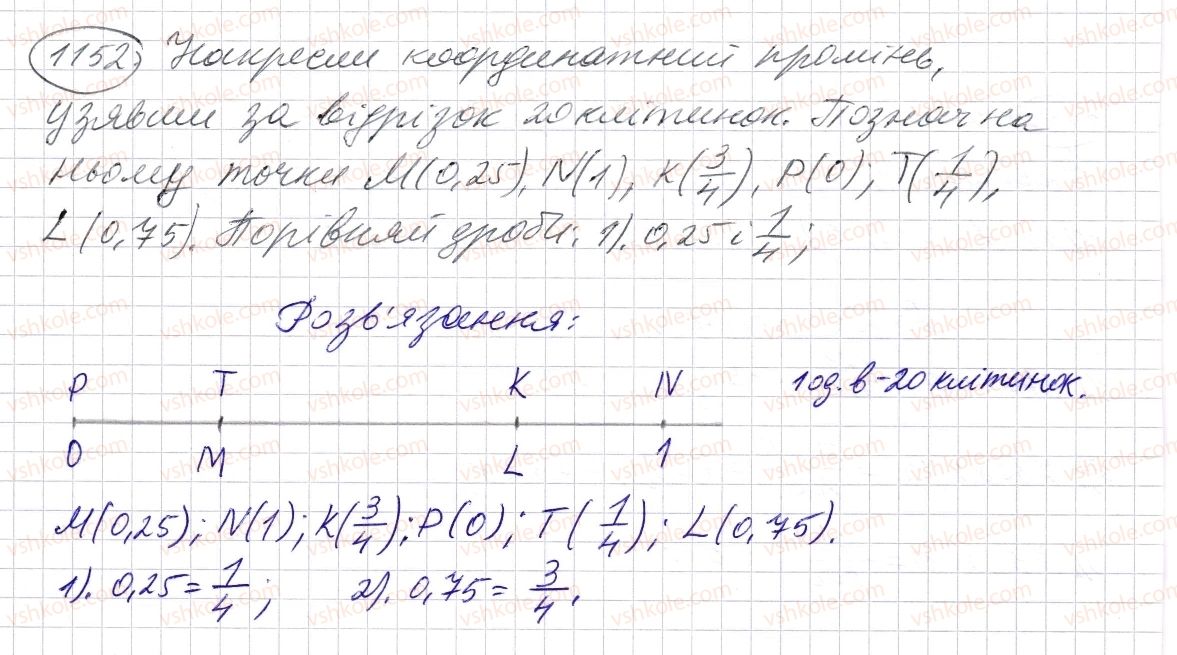 1152. Накресли координатний промінь,
узявши за відрізок 20 клітинок. Познач на
ньому точки M(0,25), N(1), K(3/4), P(0), T(1/4),
L(0,75). Порівняй дроби: 1). 0,25 і 1/4;
Розв'язання:
P T K N 1 од. в - 20 клітинок.
0 M L 1
M(0,25); N(1); K(3/4); P(0); T(1/4); L(0,75).
1). 0,25 = 1/4; 2). 0,75 = 3/4.